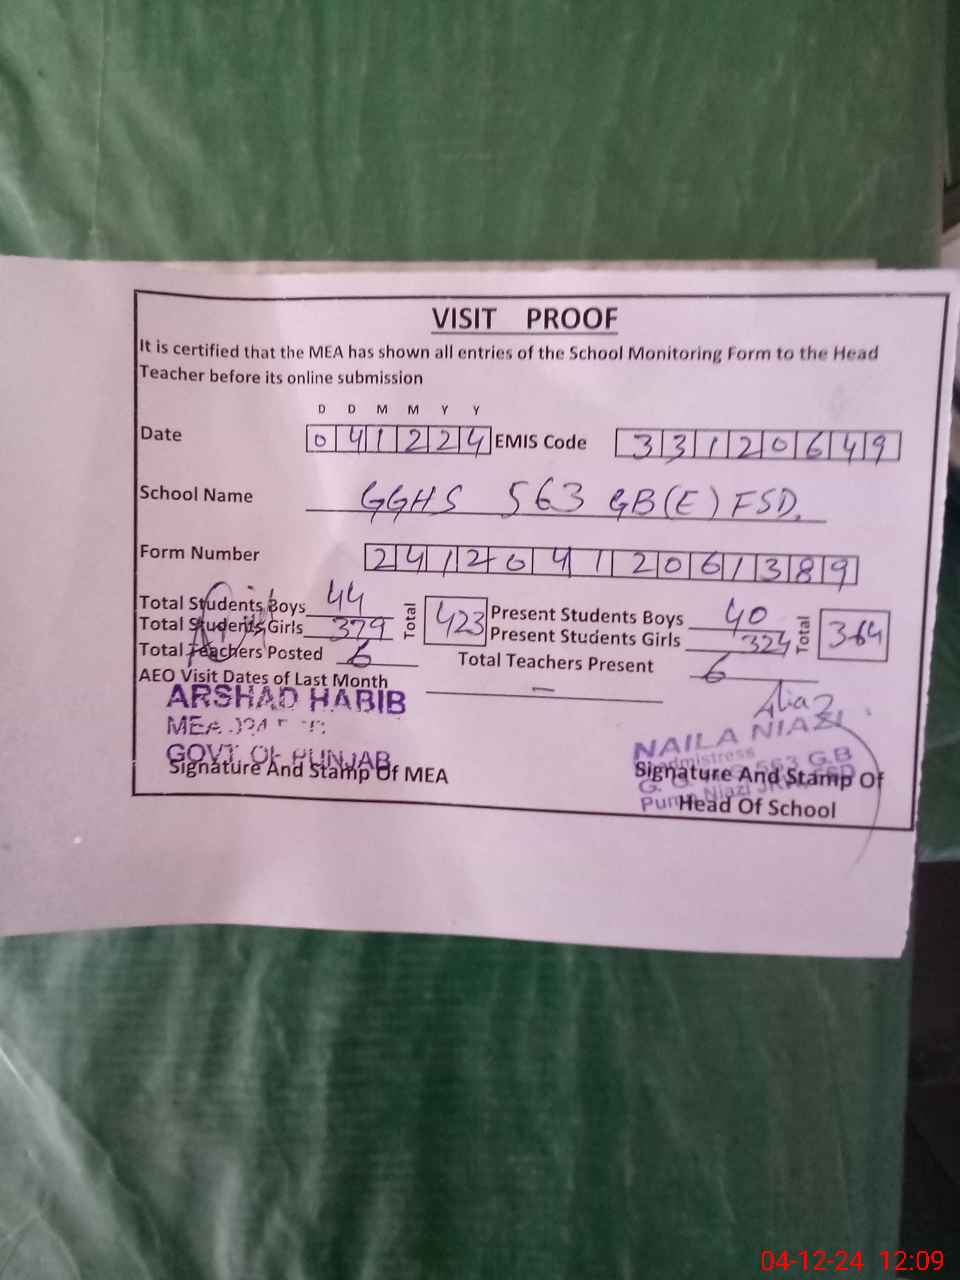 VISIT PROOF
It is certified that the MEA has shown all entries of the School Monitoring Form to the Head
Teacher before its online submission
D D M M Y Y
Date 0 4 1 2 2 4 EMIS Code 3 3 1 2 0 6 4 9
School Name GGHS 563 GB(E) FSD.
Form Number 2 4 1 2 0 4 1 2 0 6 1 3 8 9
Total Students Boys 44 Total 423 Present Students Boys 40 Total 364
Total Students Girls 379 Present Students Girls 324
Total Teachers Posted 6 Total Teachers Present 6
AEO Visit Dates of Last Month –
ARSHAD HABIB
MEA
GOVT. OF PUNJAB
Signature And Stamp Of MEA
NAILA NIAZI
563 G.B
Signature And Stamp Of
Niazi
Head Of School
04-12-24 12:09